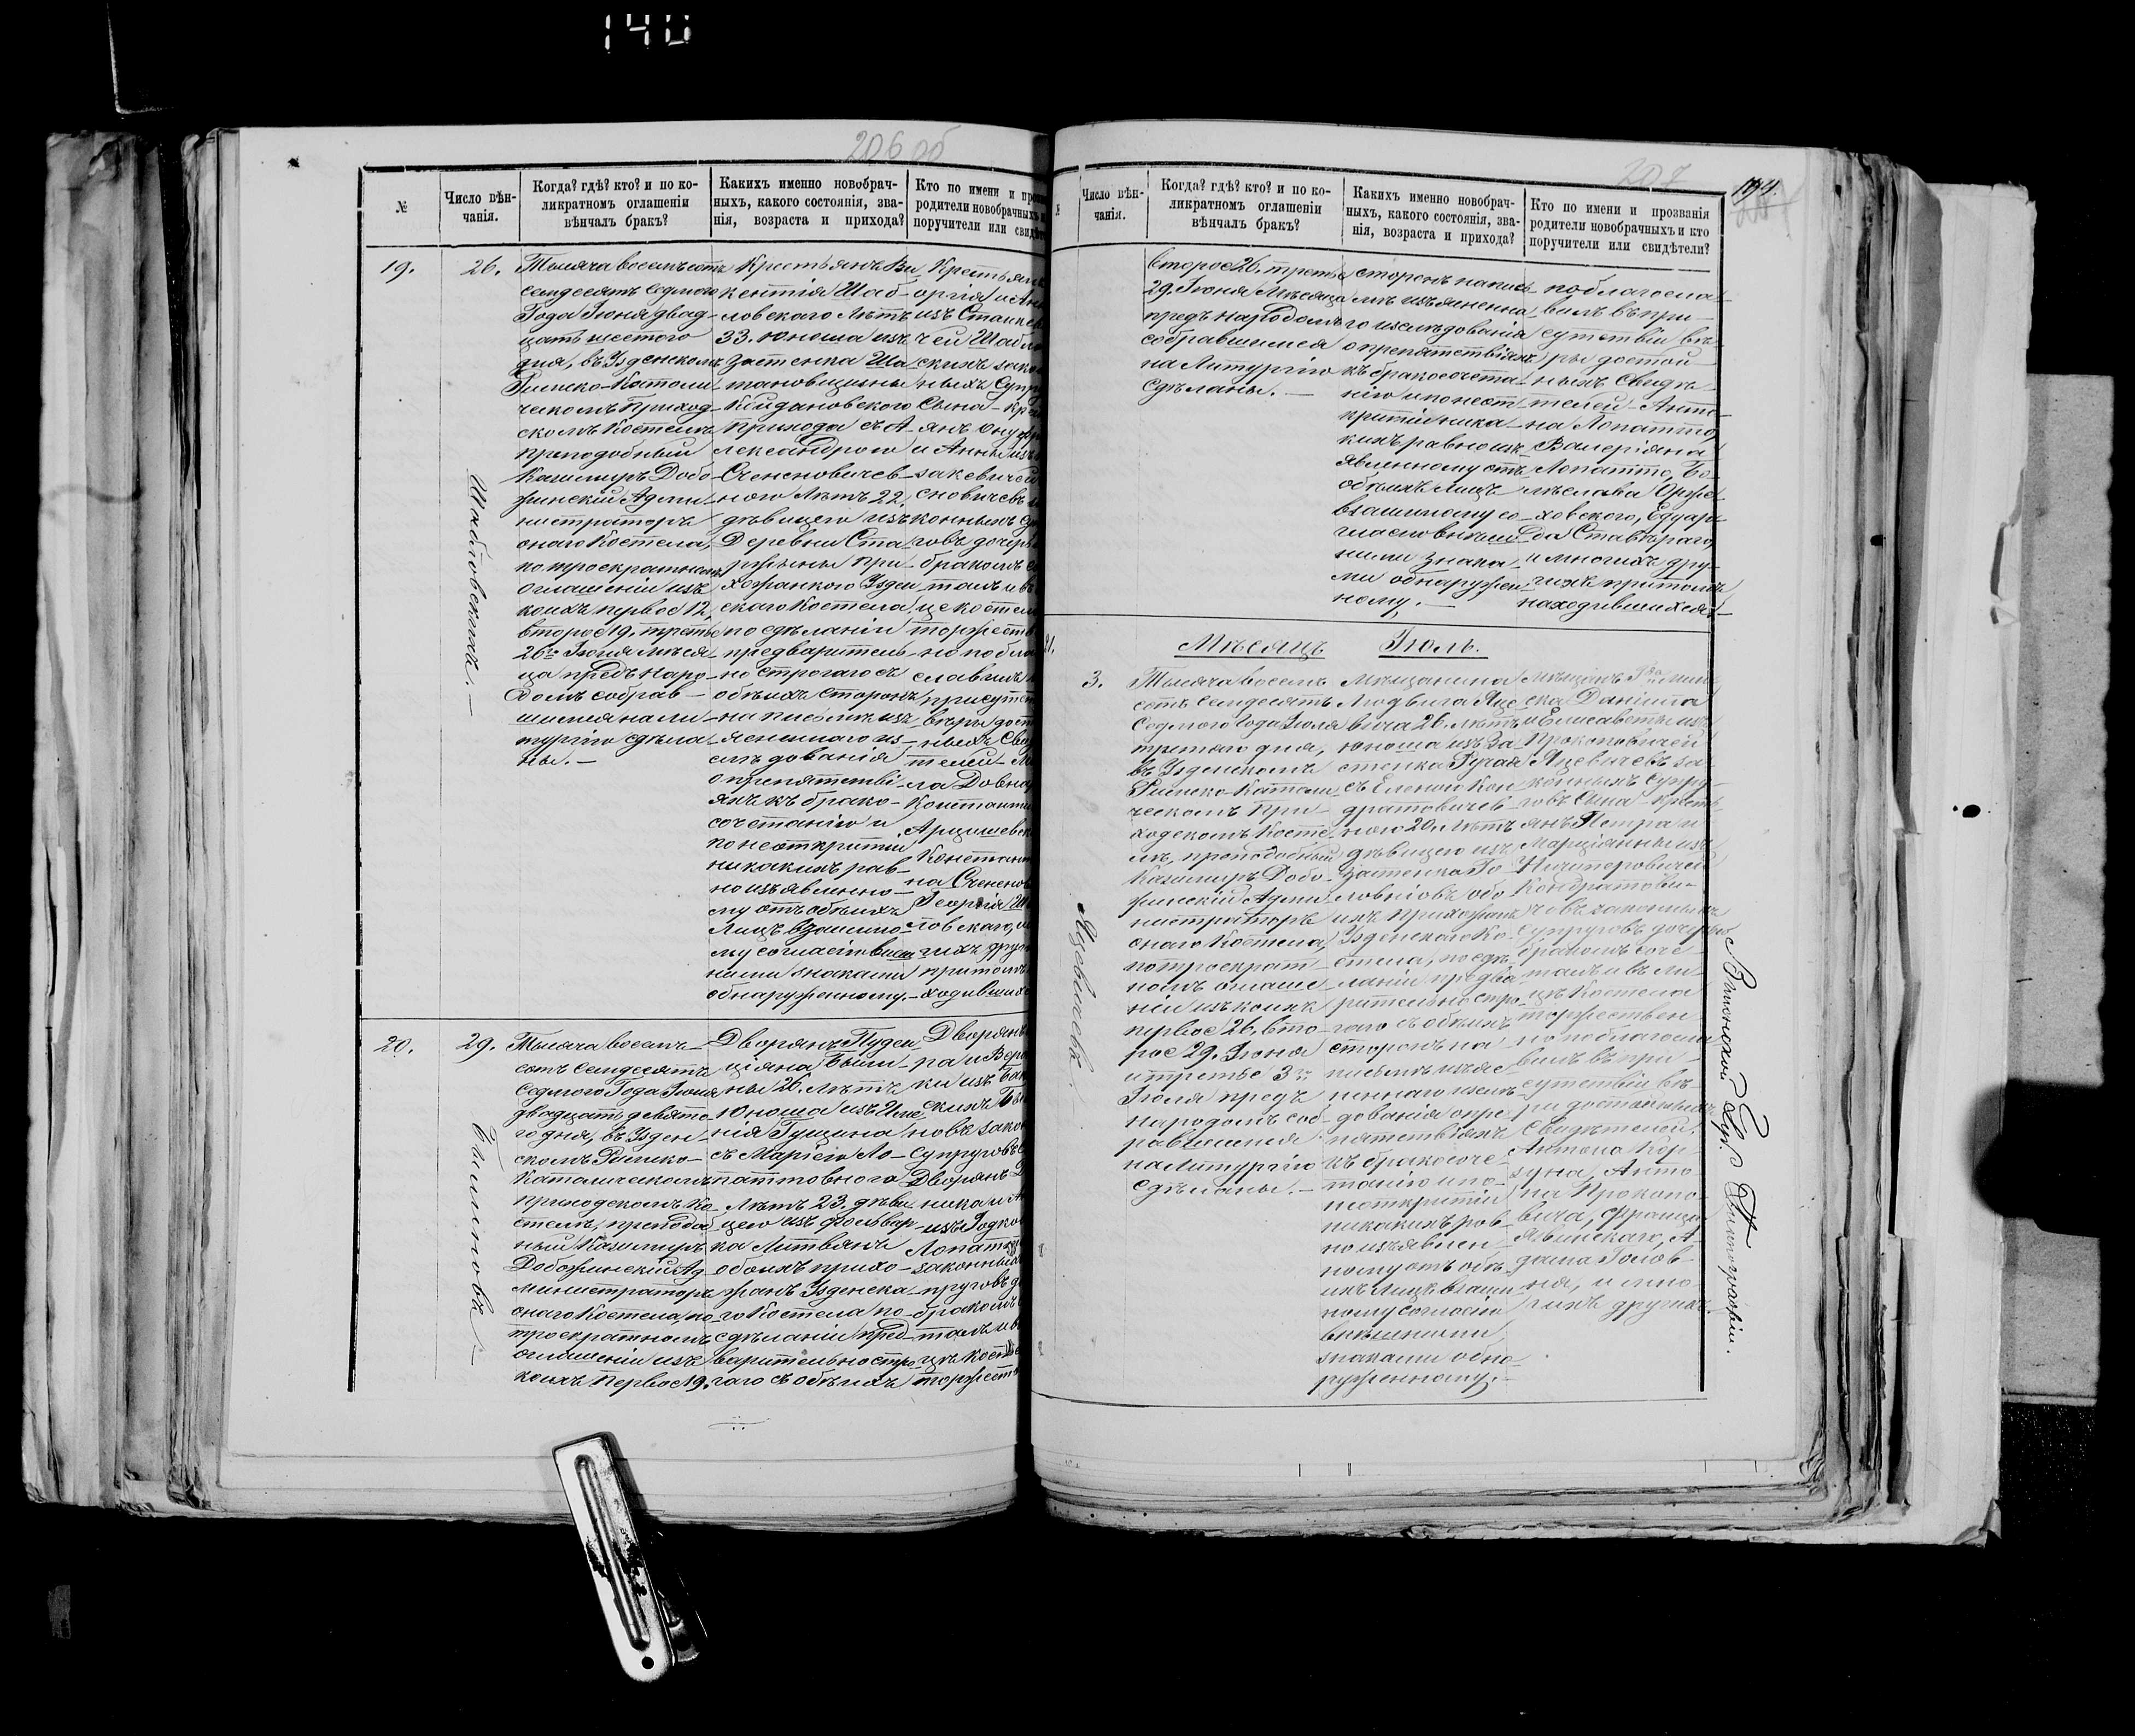 140
206 об
№
Число вѣн-
чанія.
Когда? гдѣ? кто? и по ко-
ликратномъ оглашеніи
вѣнчалъ бракъ?
Каких именно новобрач-
ныхъ, какого состоянія, зва-
нія, возраста и прихода?
Кто по имени и
родители новобрачныхъ
поручители или
19.
26.
Шабловскихъ.—
Тысяча восемьсотъ
семдесятъ седмого
Года Іюня двад-
цать шестого
дня, въ Узденскомъ
Римско-Католи-
ческомъ Приход-
скомъ Костелѣ
преподобный
Казимиръ Добо-
жинскій Адми-
нистраторъ
онаго Костела,
по троекратномъ
оглашеніи изъ
коихъ первое 12,
второе 19. третье
26го Іюня мѣся-
ца предъ Наро-
домъ собрав-
шимся на ли-
тургію сдѣла-
ны.—
Крестьянъ Ви-
кентія Шаб-
ловскаго Лѣтъ
33. Юноша изъ
Застенка Ша-
тановщины
Койдановскаго
Прихода съ А-
лександрою
Счесновичев-
ною Лѣтъ 22
дѣвицею изъ
Деревни Ста-
ржины При-
хожанкою Узден-
скаго Костела,
по сдѣланіи
предваритель-
но строгаго съ
обѣихъ сторонъ
на письмѣ изъ-
ясненнаго из-
слѣдованія
о препятстві-
яхъ къ брако-
сочетанію и
по неоткрытіи
никакихъ рав-
но изъявленно-
му отъ обѣихъ
Лицъ взаимно-
му согласію внѣш-
ними знаками
обнаруженному.—
Крестьян
оргія и
изъ Станке
чей Шабло
скихъ зако
ныхъ Супр
Сына—
янъ Онуфр
и Анны изъ
закевичей
сновичевъ
конныхъ
говъ дочерь
бракомъ
талъ и въ
це костел
торжеств
но побла
славилъ
присутст
вѣры дост
ныхъ Сви
телей—
ла Довна
Константи
Арцишевск
Констант
на Счеснов
Георгія
ловскаго, и
гихъ друг
притомъ
ходивших
20.
29.
Былиновъ.—
Тысяча восемь-
сотъ семдесятъ
Седмого Года Іюня
двадцать девято-
го дня, въ Узден-
скомъ Римско-
Католическомъ
Приходскомъ Ко-
стелѣ, преподоб-
ный Казимиръ
Добожинскій Ад-
министраторъ
онаго Костела, по
троекратномъ
оглашеніи изъ
коихъ первое 19.
Дворянъ Пуден-
ціяна Были-
ны 26. Лѣтъ
Юноша изъ Име-
нія Гущина
съ Маріею Ло-
паттовною
Лѣтъ 23. дѣви-
цею изъ фольвар-
ка Литвяны
обоихъ прихо-
жанъ Узденска-
го Костела по
сдѣланіи пред-
варительно стро-
гаго съ обѣихъ
Дворянъ
ра и Веро
ки изъ
скихъ
новъ зако
Супруговъ
Дворянъ
ника и
изъ Годко
Лопатт
законных
пруговъ
бракомъ
талъ и въ
цѣ Косте
торжеств
207
194.
Число вѣн-
чанія.
Когда? гдѣ? кто? и по ко-
ликратномъ оглашеніи
вѣнчалъ бракъ?
Каких именно новобрач-
ныхъ, какого состоянія, зва-
нія, возраста и прихода?
Кто по имени и прозванія
родители новобрачныхъ и кто
поручители или свидѣтели?
второе 26. третье
29. Іюня Мѣсяца
предъ Народомъ
собравшимся
на Литургію
сдѣланы.—
сторонъ на пись-
мѣ изъясненна-
го изслѣдованія
о препятствіяхъ
къ бракосочета-
нію и по неот-
крытіи ника-
кихъ равно изъ-
явленному отъ
обѣихъ лицъ
взаимному со-
гласію внѣш-
ними знака-
ми обнаружен-
ному.—
но благосла-
вилъ въ при-
сутствіи вѣ-
ры достой-
ныхъ Свидѣ-
телей—Анто-
на Лопатто,
Валеріяна
Лопатто, Бо-
леслава Орже-
ховскаго, Едуар-
да Ставѣраго,
и многихъ дру-
гихъ притомъ
находившихся.
21.
Мѣсяцъ Іюль.
3.
Яцевичевъ.
Тысяча восемь-
сотъ семдесятъ
Седмого года Іюля
третяго дня,
въ Узденскомъ
Римско-Католи-
ческомъ При-
ходскомъ Косте-
лѣ, преподобный
Казимиръ Добо-
жинскій Адми-
нистраторъ
онаго Костела,
по троекрат-
номъ оглаше-
ніи изъ коихъ
первое 26, вто-
рое 29. Іюня
и третье 3го
Іюля предъ
народомъ соб-
равшимся
на Литургію
сдѣланы.—
Мѣщанина
Людвига Яце-
вича 26. лѣтъ
юноша изъ За-
стенка Ручая
съ Еленою Кон-
дратовичев-
ною 20. лѣтъ
дѣвицею изъ
Застенка Го-
ловніовъ обо-
ихъ прихожанъ
Узденскаго Ко-
стела, по сдѣ-
ланіи предва-
рительно стро-
гаго съ обѣихъ
сторонъ на
письмѣ изъяс-
неннаго изслѣ-
дованія о пре-
пятствіяхъ
къ бракосоче-
танію и по
неоткрытіи
никакихъ рав-
но изъявлен-
ному отъ обѣ-
ихъ лицъ взаим-
ному согласію
внѣшними
знаками обна-
руженному.—
Мѣщанъ Го. Мин-
ска Даніила
и Елисаветы изъ
Прокоповичей
Яцевичевъ за-
конныхъ супру-
говъ Сына—кресть-
янъ Петра и
Марціянны изъ
Ничипоровичей
Кондратови-
човъ законныхъ
Супруговъ дочерью
бракомъ соче-
талъ и въ ли-
цѣ Костела
торжествен-
но поблагосла-
вилъ въ при-
сутствіи вѣ-
ры достойныхъ
Свидѣтелей.
Антона Кор-
зуна, Анто-
на Прокопо-
вича, Франца
Яблонскаго, А-
дама Голов-
ня, и мно-
гихъ другихъ.